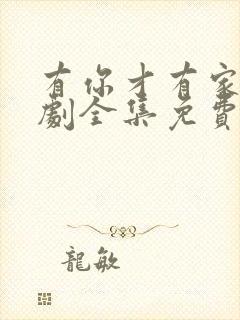 有你才有家
劇全集免費
龍敏